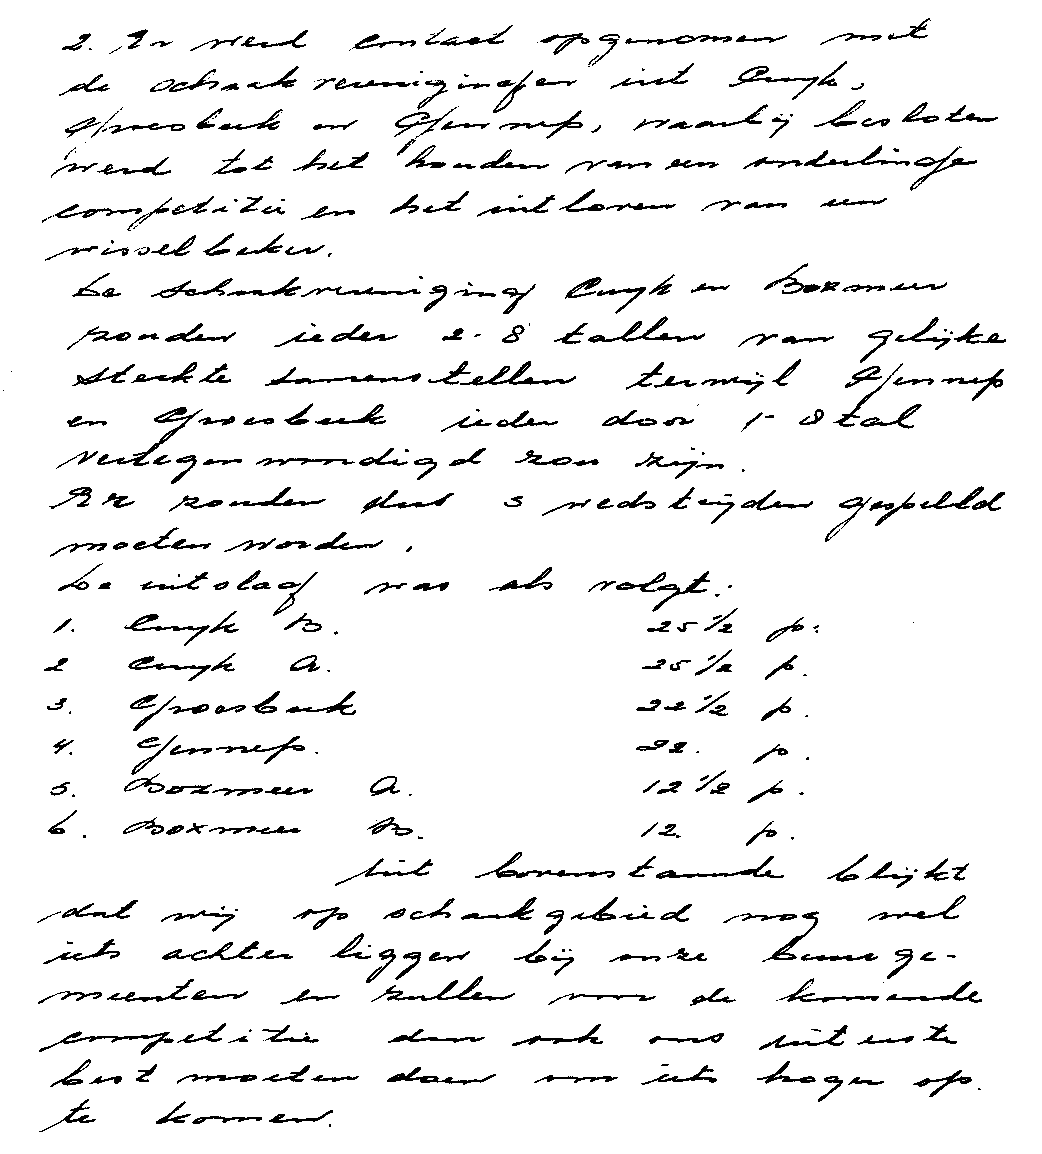 2. Er werd contact opgenomen met
de schaakverenigingen uit Cuyk,
Groesbeek en Gennep, waarbij besloten
werd tot het houden van een onderlinge
competitie en het uitloven van een
wisselbeker.
De schaakvereniging Cuyk en Boxmeer
zouden ieder 2-8 tallen van gelijke
sterkte samenstellen terwijl Gennep
en Groesbeek ieder door 1-8tal
vertegenwoordigd zou zijn.
Er zouden dus 5 wedstrijden gespeeld
moeten worden.
De uitslag was als volgt:
1. Cuyk B. 25 1/2 p.
2 Cuyk A. 25 1/2 p.
3. Groesbeek 22 1/2 p.
4. Gennep. 22. p.
5. Boxmeer A. 12 1/2 p.
6. Boxmeer B. 12. p.
Uit bovenstaande blijkt
dat wij op schaakgebied nog wel
iets achter liggen bij onze buurge-
meenten en zullen voor de komende
competitie dan ook ons uiterste
best moeten doen om iets hoger op
te komen.